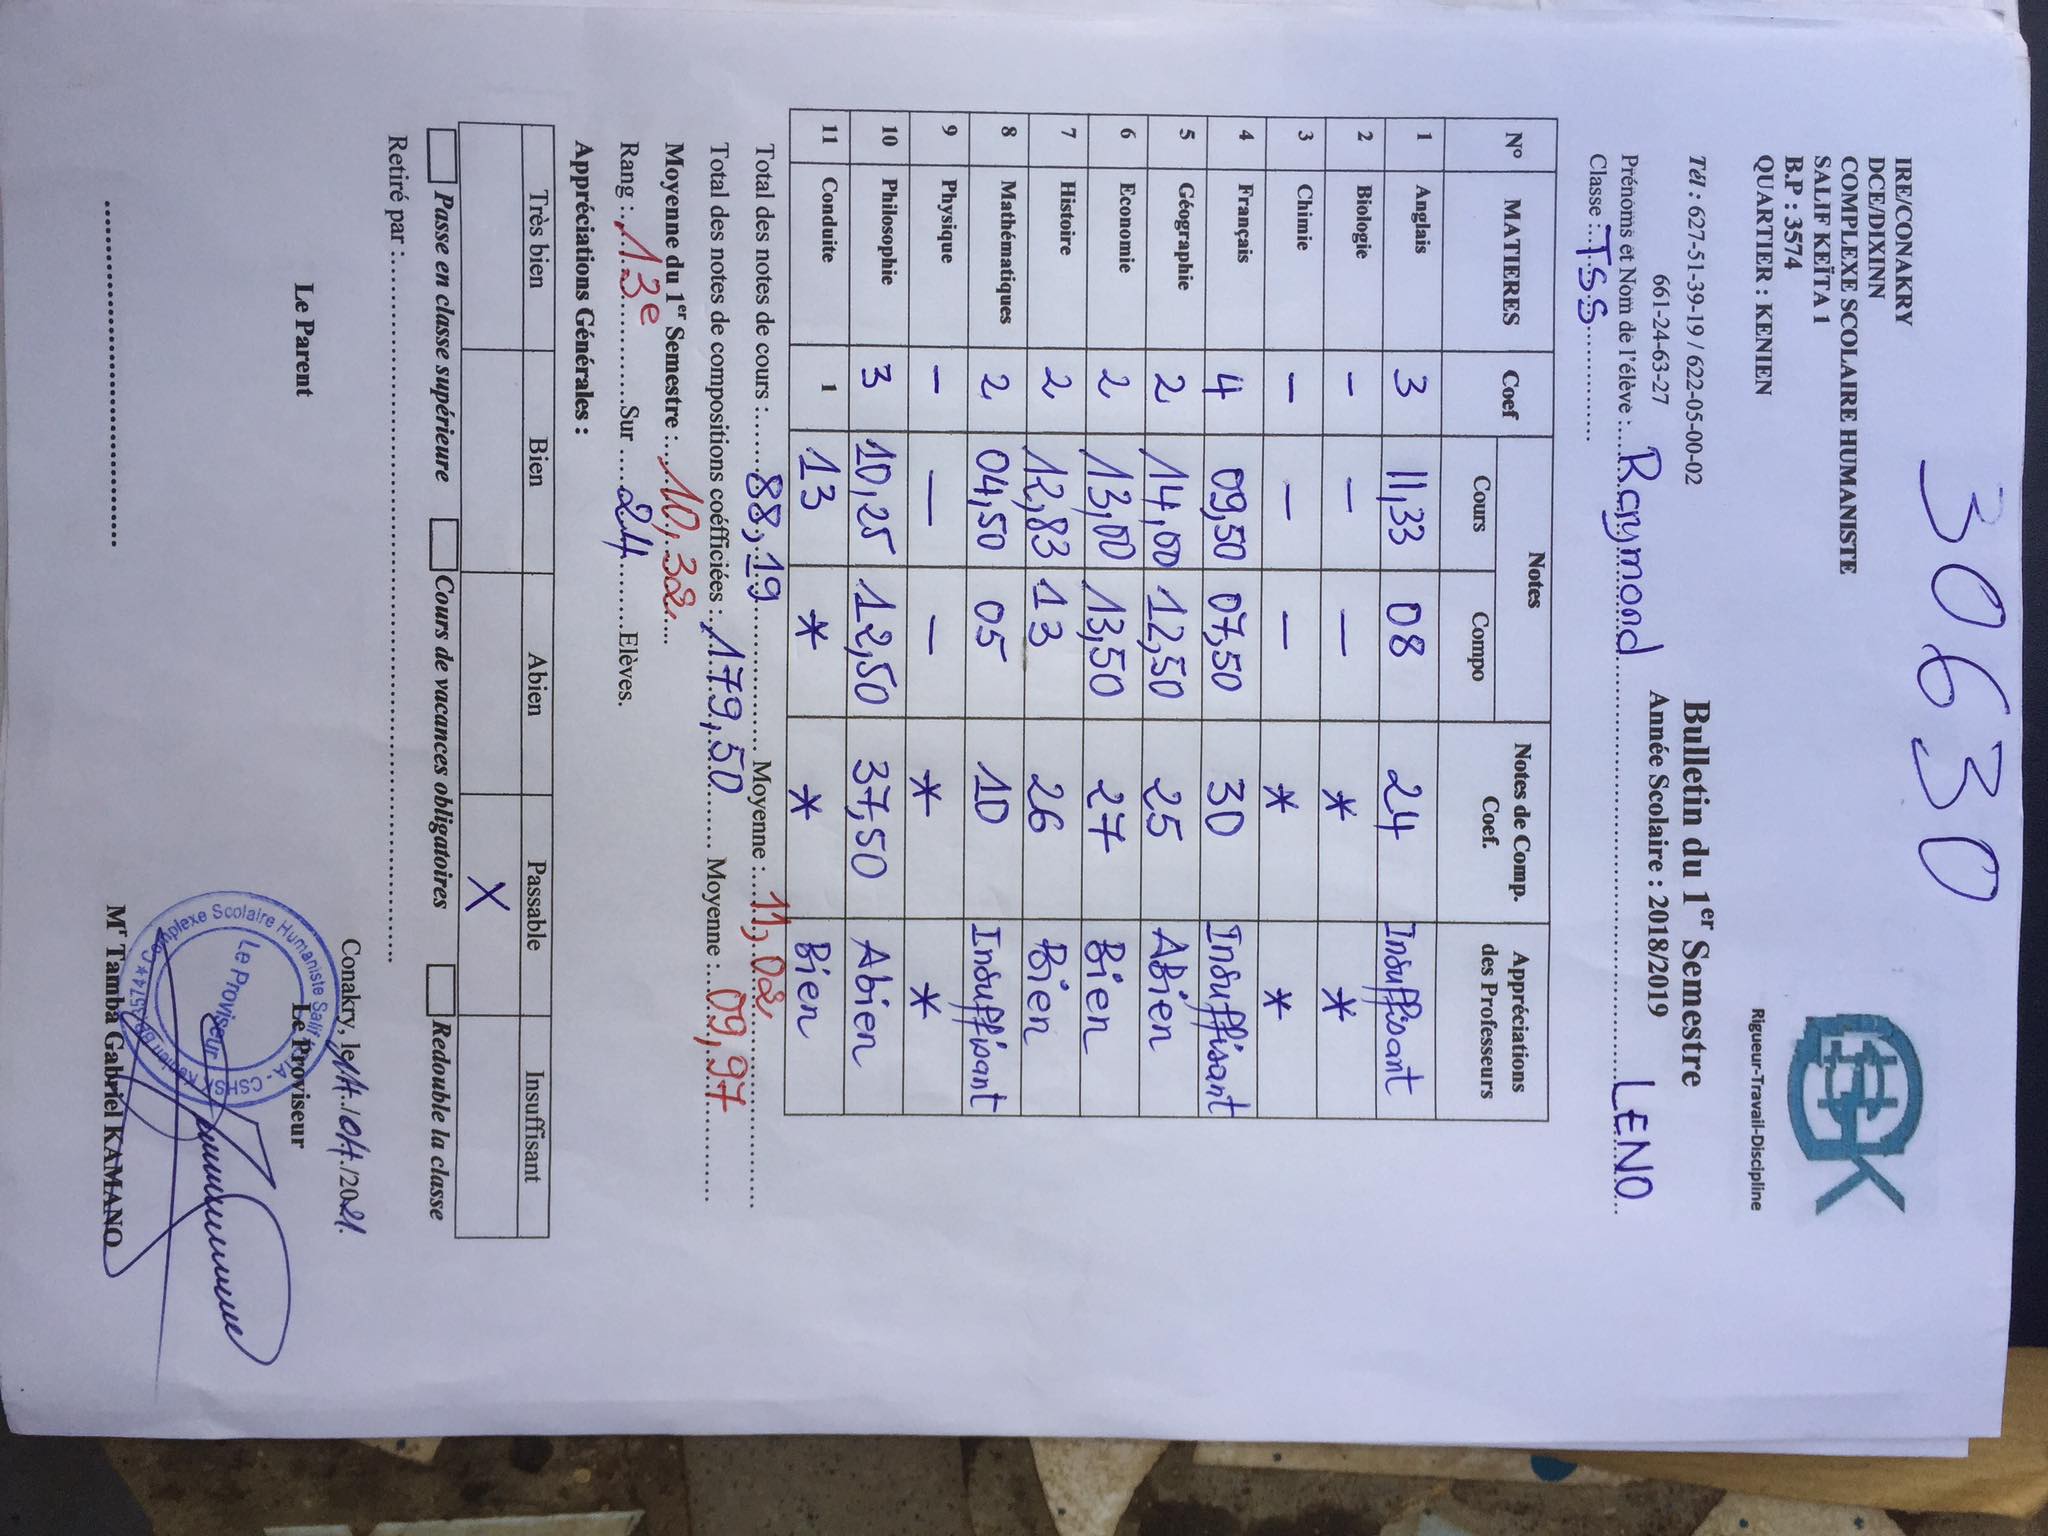 30630
IRE/CONAKRY
DCE/DIXINN
COMPLEXE SCOLAIRE HUMANISTE
SALIF KEÏTA 1
B.P : 3574
QUARTIER : KENIEN
Rigueur-Travail-Discipline
Bulletin du 1er Semestre
Tél : 627-51-39-19 / 622-05-00-02
661-24-63-27
Année Scolaire : 2018/2019
Prénoms et Nom de l'élève : Raymond LENO
Classe : TSS
N° MATIERES Coef Notes Notes de Comp. Coef. Appréciations des Professeurs
Cours Compo
1 Anglais 3 11,33 08 24 Insuffisant
2 Biologie - - - * *
3 Chimie - - - * *
4 Français 4 09,50 07,50 30 Insuffisant
5 Géographie 2 14,00 12,50 25 ABien
6 Economie 2 13,00 13,50 27 Bien
7 Histoire 2 12,83 13 26 Bien
8 Mathématiques 2 04,50 05 10 Insuffisant
9 Physique - - - * *
10 Philosophie 3 10,25 12,50 37,50 Abien
11 Conduite 1 13 * * Bien
Total des notes de cours : 88,19 Moyenne : 11,02
Total des notes de compositions coéfficiées : 179,50 Moyenne : 09,97
Moyenne du 1er Semestre : 10,32
Rang : 13e Sur 24 Elèves.
Appréciations Générales :
Très bien Bien Abien Passable Insuffisant
X
Passe en classe supérieure Cours de vacances obligatoires Redouble la classe
Retiré par :
Conakry, le 14/04/2021
Le Parent Le Proviseur
Complexe Scolaire Humaniste Salif
Le Proviseur
Mr Tamba Gabriel KAMANO